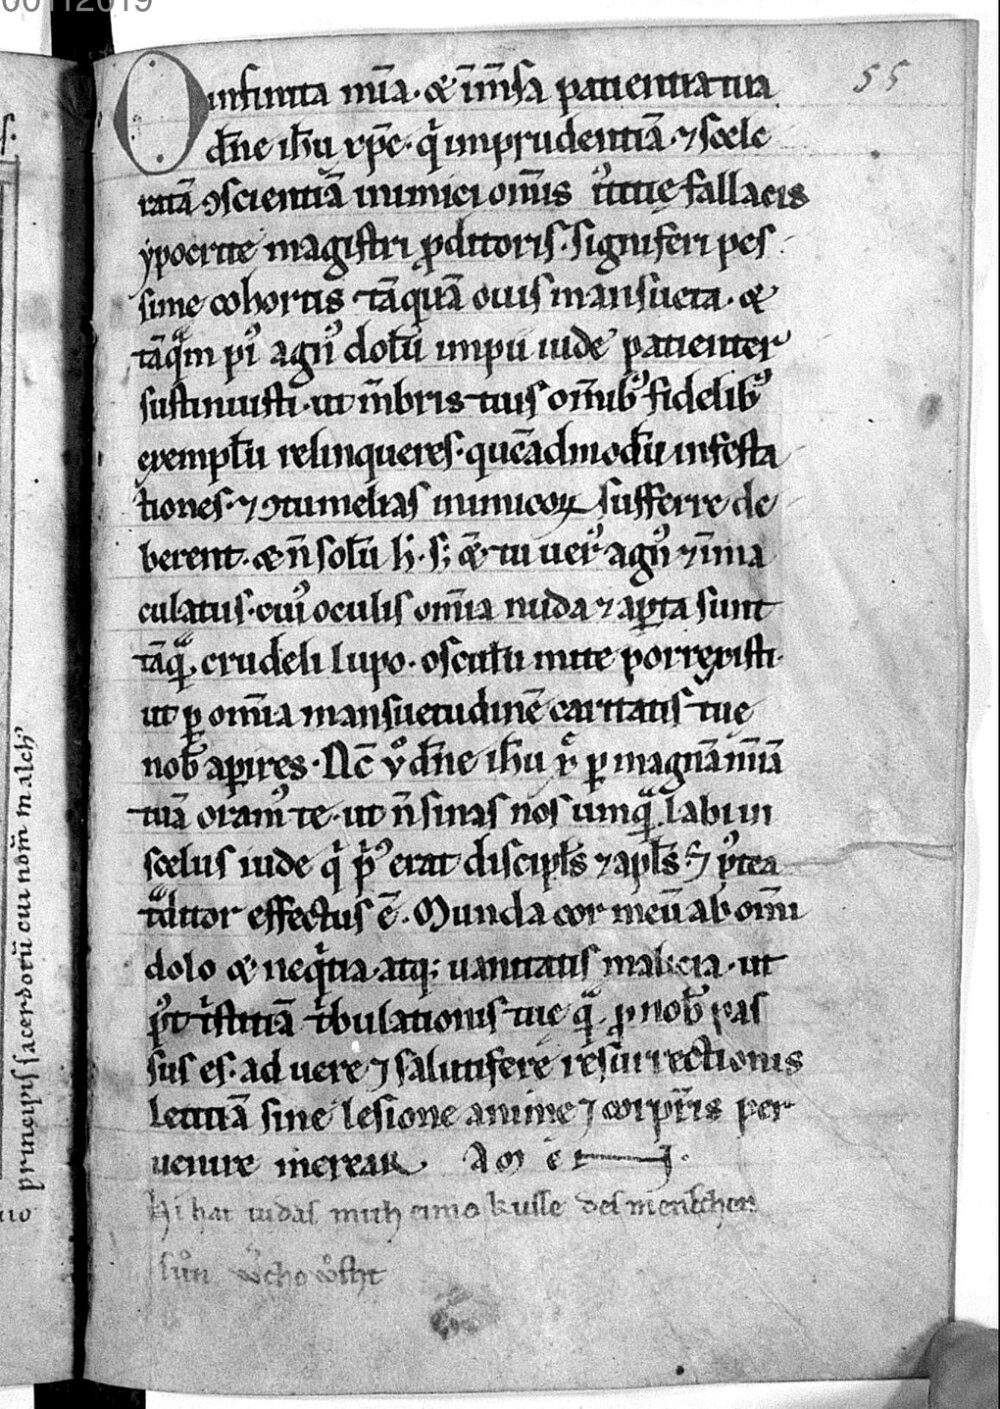 00112019
55
O infinita mīa · & īm̄sa patientia tua
dn̄e ih̄u xp̄e · q̇ imprudentiā · ⁊ scele
ratā ꝯscientiā inimici om̄is uͥtutę fallacis
ypocrite magistri ꝓditoris · signiferi pes
sime cohortis tāquā ouis mansueta · &
tāqͣm piꝰ agnꝰ dolū impii iude patienter
sustinuisti · ut m̄bris tuis om̄ibꝰ fidelibꝰ
exemplū relinqueres · quēadmodū infesta
tiones · ⁊ ꝯtumelias inimicoꝝ sufferre de
berent · & n̄ solū h̄ · s; & tu uerꝰ agnꝰ ⁊ īma
culatus · cuiꝰ oculis om̄ia nuda ⁊ aꝑta sunt
tāqͣ crudeli lupo · osculū mite porrexisti ·
ut ꝑ om̄ia mansuetudinē caritatis tuę
nob̄ aꝑires · Nc̄ dn̄e ih̄u ꝑ magnā mīā
tuā oramꝰ te · ut n̄ sinas nos umqͣ labi in
scelus iude q̇ pͥꝰ erat discipl̄s ⁊ apl̄s pꝰtea
tͣditor effectus ē · Munda cor meū ab om̄i
dolo & neqͥtia atq; uanitatis malicia · ut
pꝰt tͥstitiā tͥbulationis tuę qͣ ꝓ nob̄ pas
sus es · ad uere ⁊ salutifere resurrectionis
letitiā sine lesione anime ⁊ corporis per
uenire merear · AMEN ·
Hi hat iudas mith eimo kusse des menschen
sůn
principis sacerdotū cui nom̄ malchꝰ